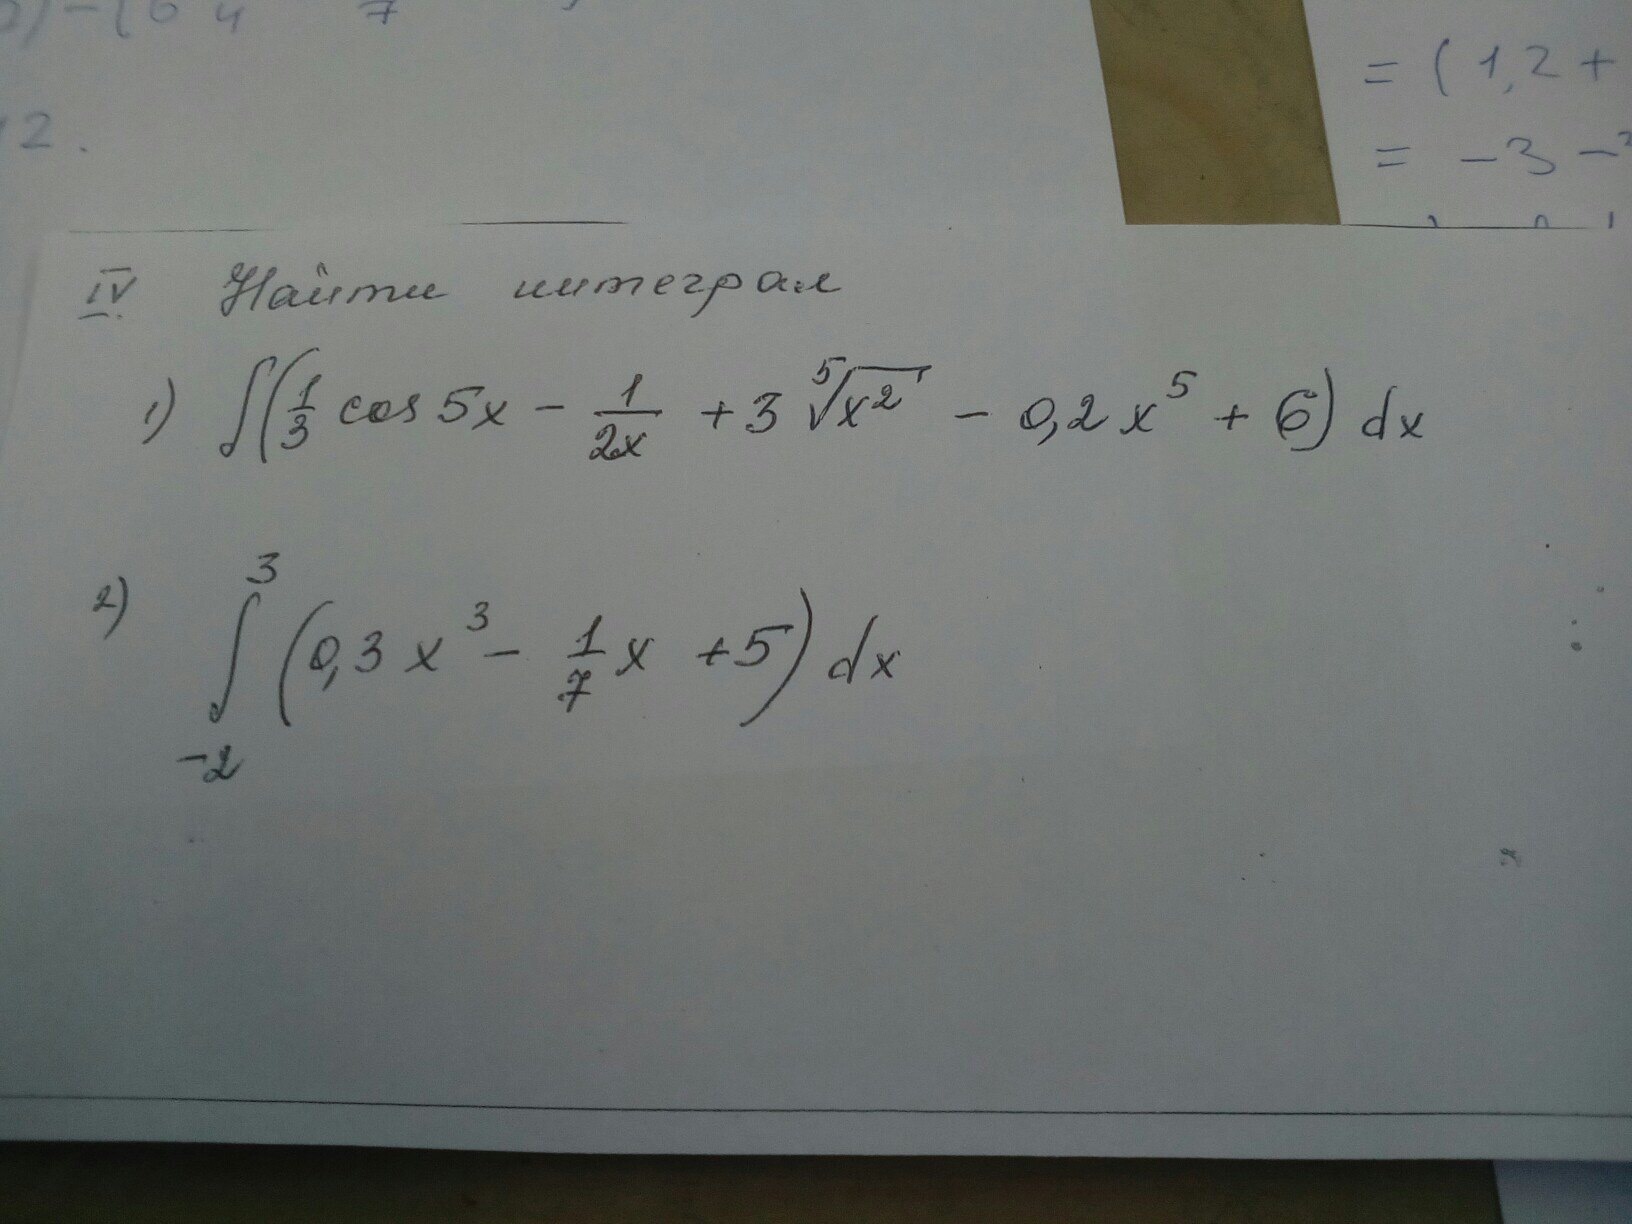 4 7
12.
= (1,2 +
= -3 -
IV. Найти интеграл
1) ∫(1/3 cos 5x - 1/2x + 3 ⁵√x² - 0,2x⁵ + 6) dx
2) ∫₋₂³ (0,3x³ - 1/7 x + 5) dx